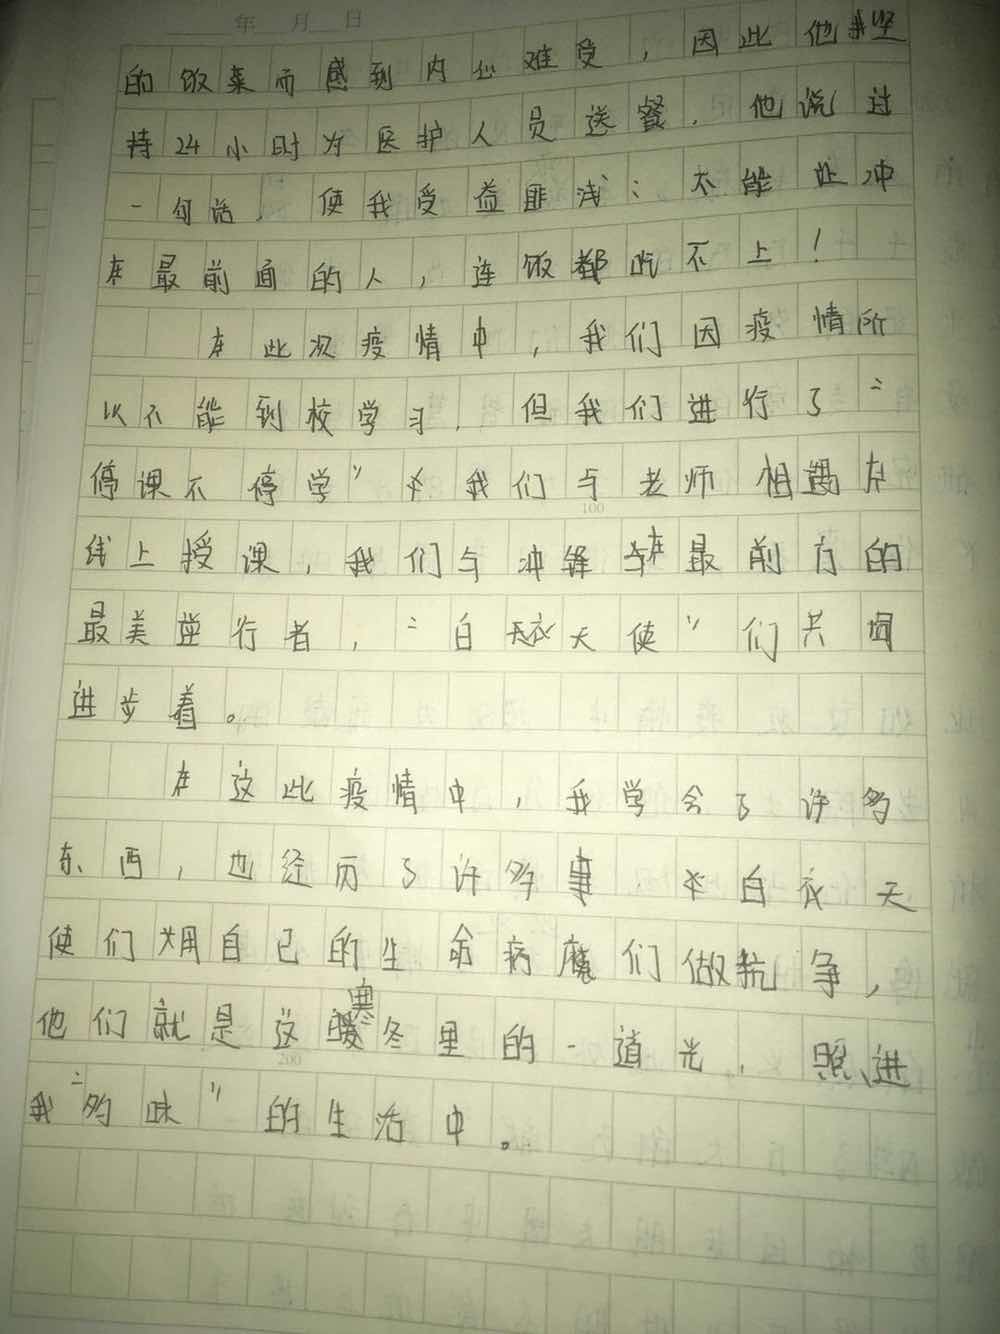 年 月 日
的饭菜而感到内心难受，因此他坚
持24小时为医护人员送餐，他说过
一句话，使我受益匪浅：不能让冲
在最前面的人，连饭都吃不上！
在此次疫情中，我们因疫情所
以不能到校学习，但我们进行了“
停课不停学”我们与老师相遇在
线上授课，我们与冲锋在最前方的
最美逆行者，“白衣天使”们共同
进步着。
在这此疫情中，我学会了许多
东西，也经历了许多事，白衣天
使们用自己的生命病魔们做抗争，
他们就是这寒冬里的一道光，照进
我“的味”的生活中。
100
200